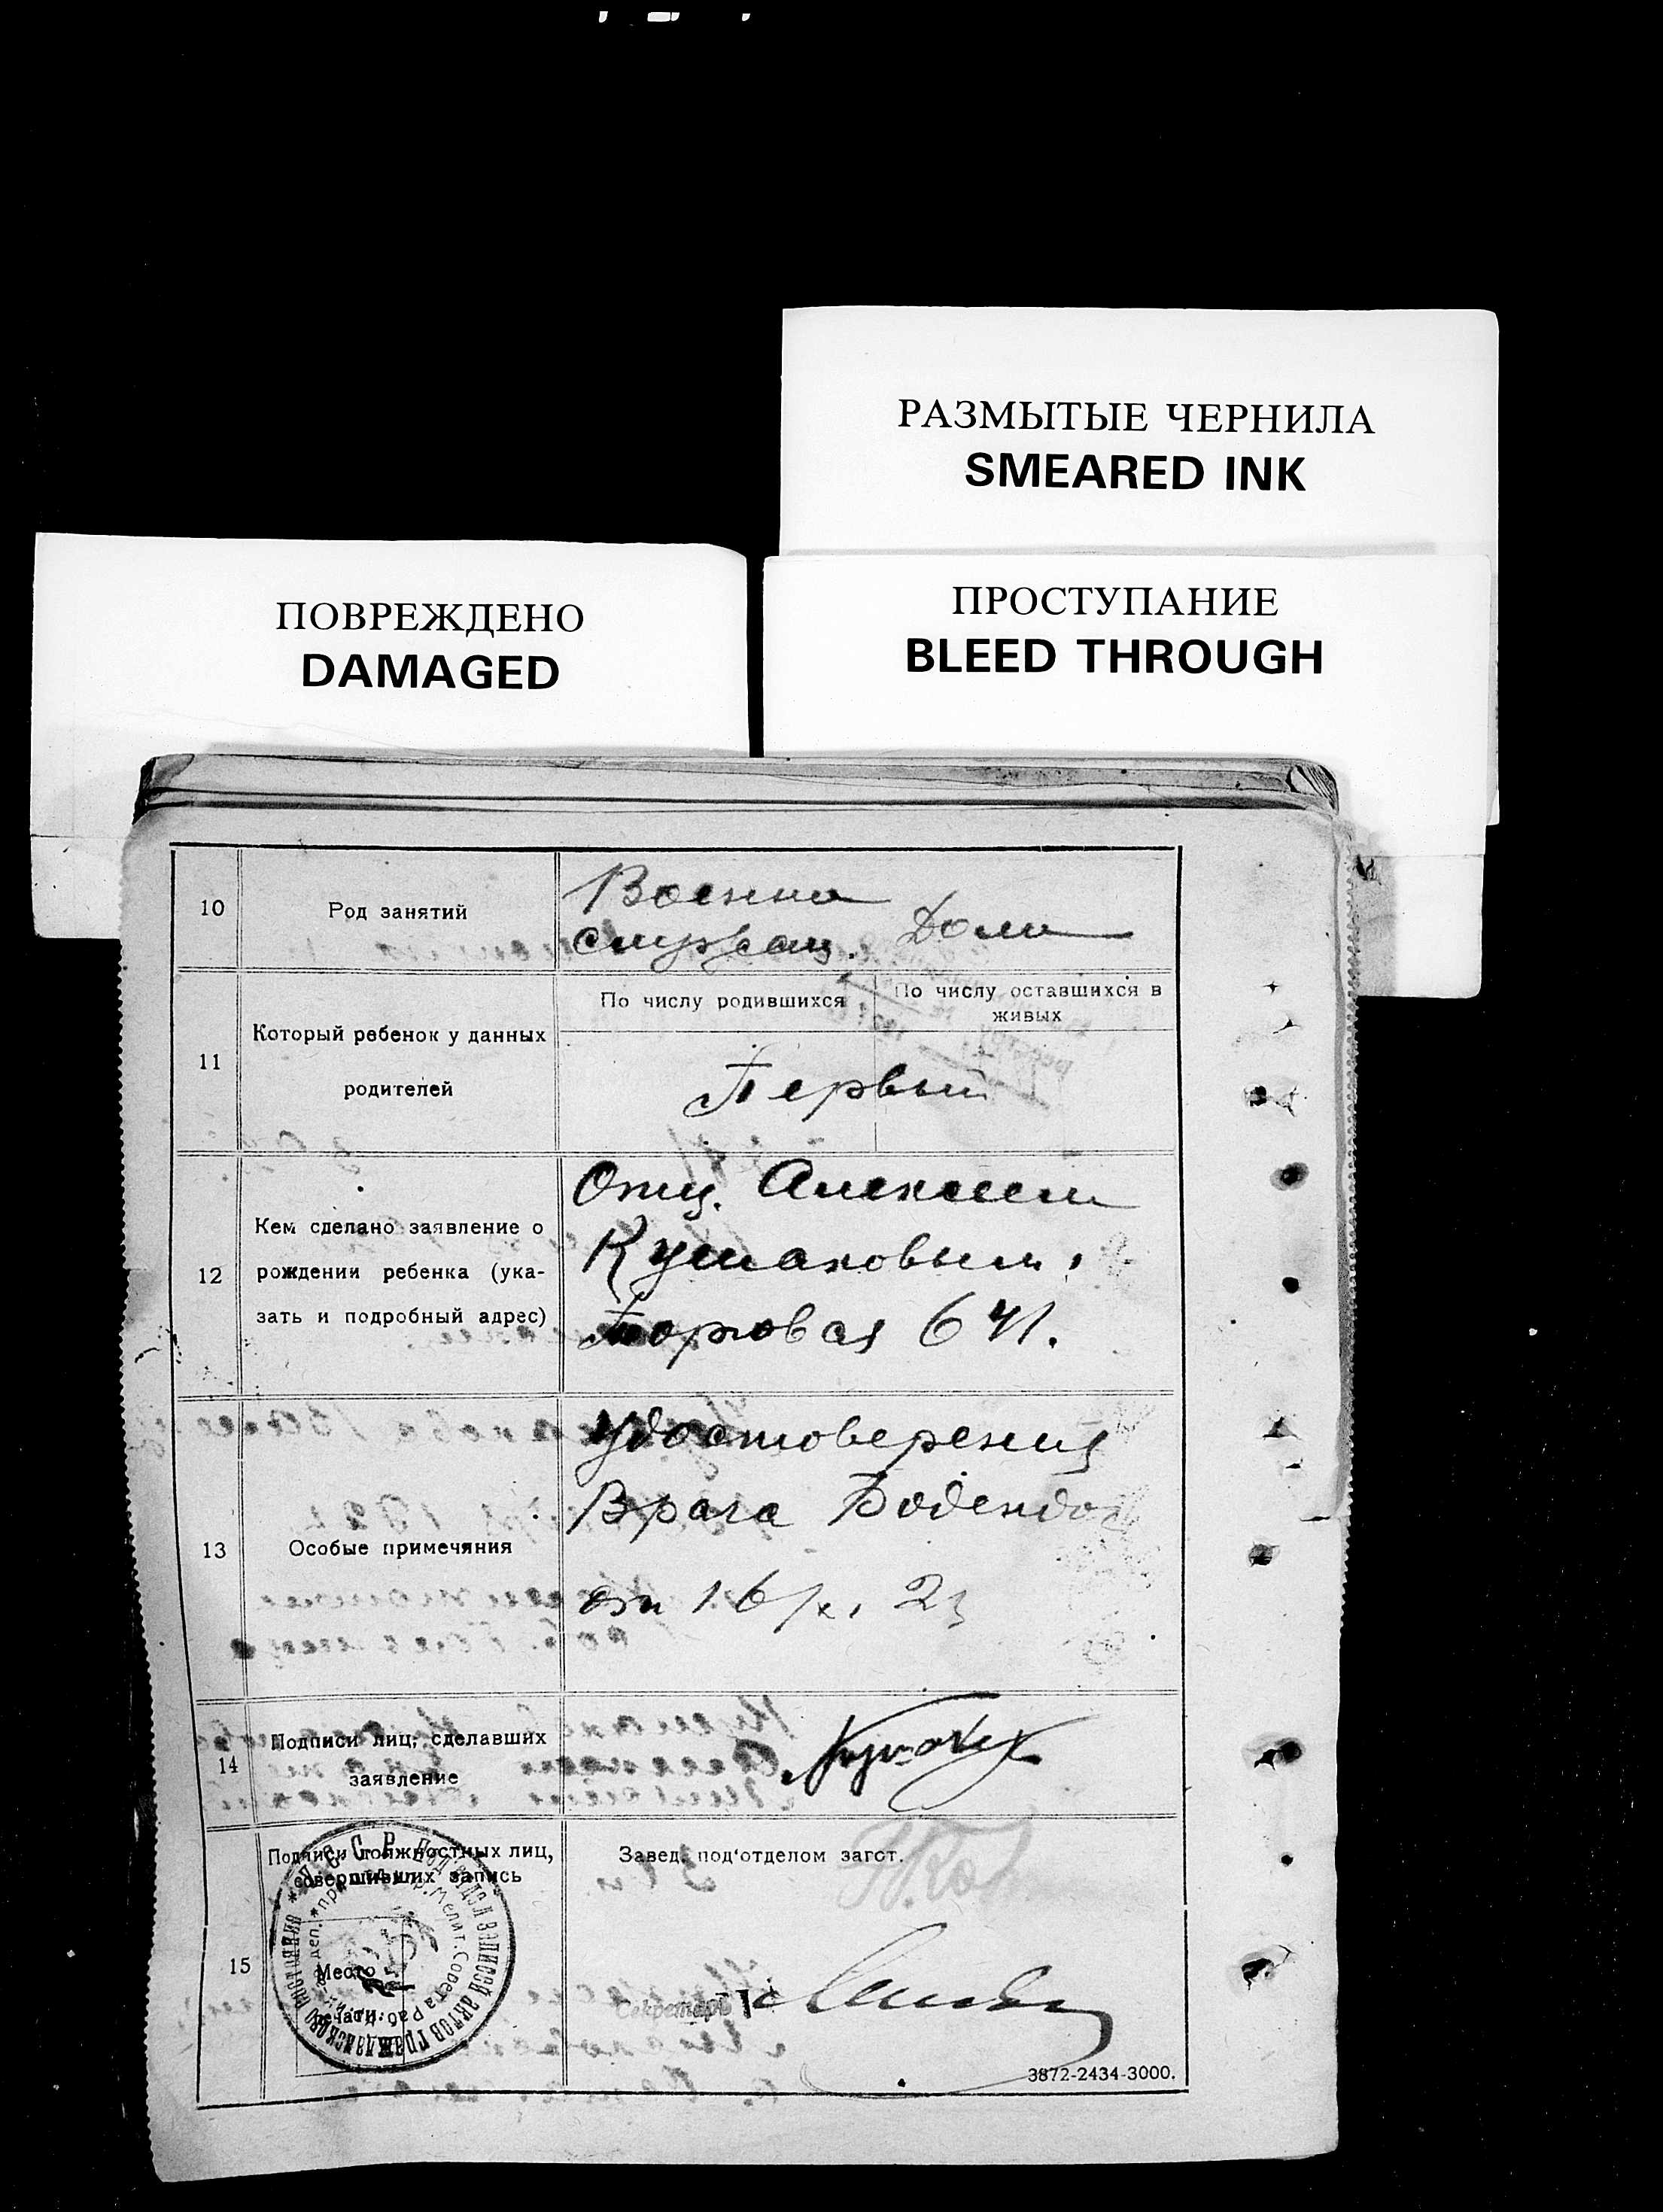 РАЗМЫТЫЕ ЧЕРНИЛА
SMEARED INK
ПОВРЕЖДЕНО
DAMAGED
ПРОСТУПАНИЕ
BLEED THROUGH
10
Род занятий
Военно
служащ.
Дом
11
Который ребенок у данных
родителей
По числу родившихся
По числу оставшихся в
живых
Первый
12
Кем сделано заявление о
рождении ребенка (ука-
зать и подробный адрес)
Отц. Алексеем
Кушаковым,
Торговая 641.
13
Особые примечания
Удостоверения
Врача
от 16/х. 23
14
Подписи лиц, сделавших
заявление
15
Подписи должностных лиц,
совершивших запись
Место
печати
Завед. под'отделом загст.
Секретарь
3872-2434-3000.